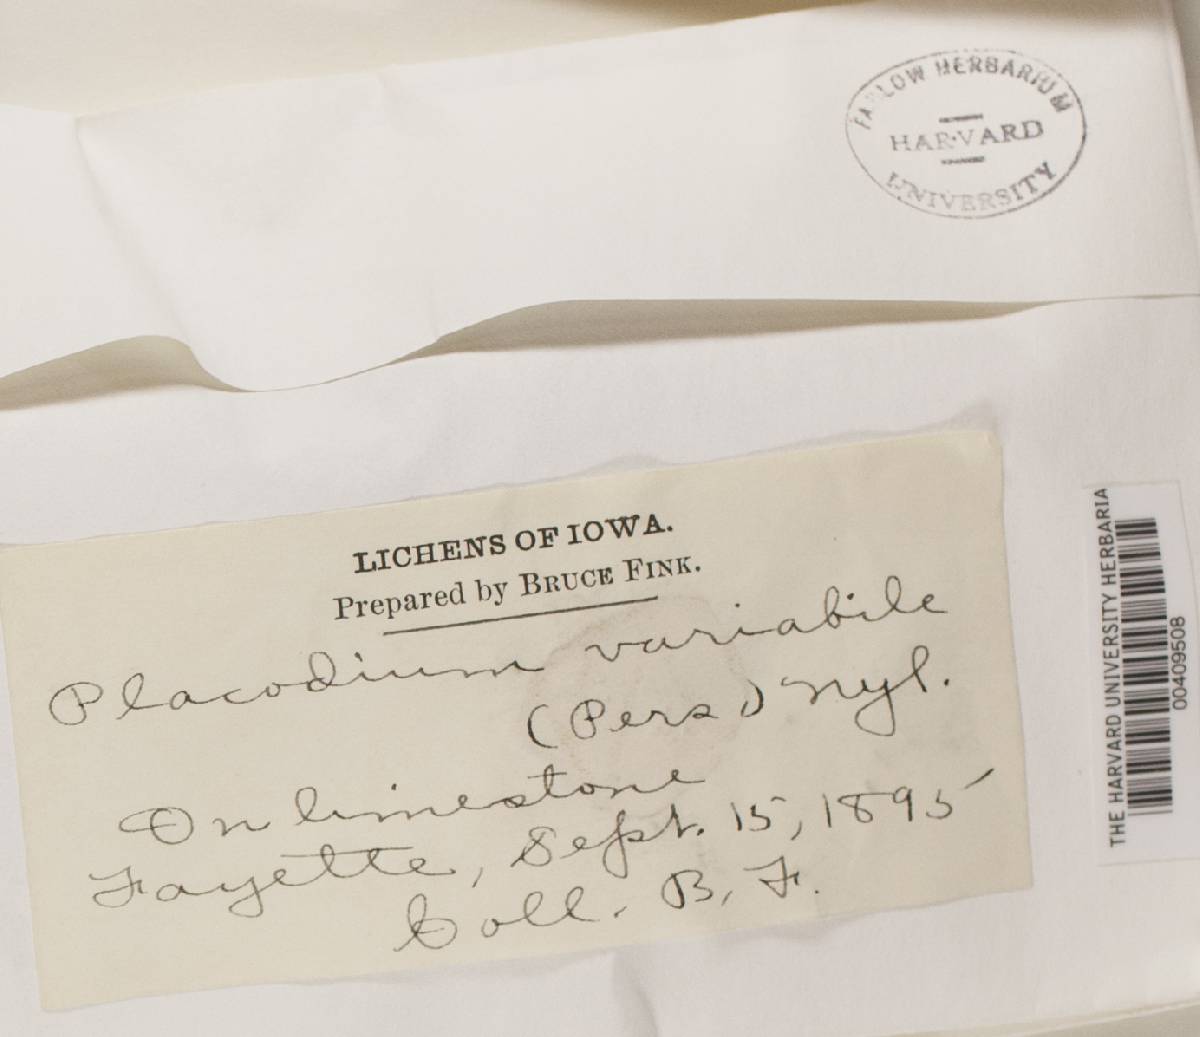 FARLOW HERBARIUM
HARVARD
UNIVERSITY
LICHENS OF IOWA.
Prepared by BRUCE FINK.
Placodium variabile
(Pers) Nyl.
On limestone
Fayette, Sept. 15, 1895
Coll. B. F.
THE HARVARD UNIVERSITY HERBARIA
00409508